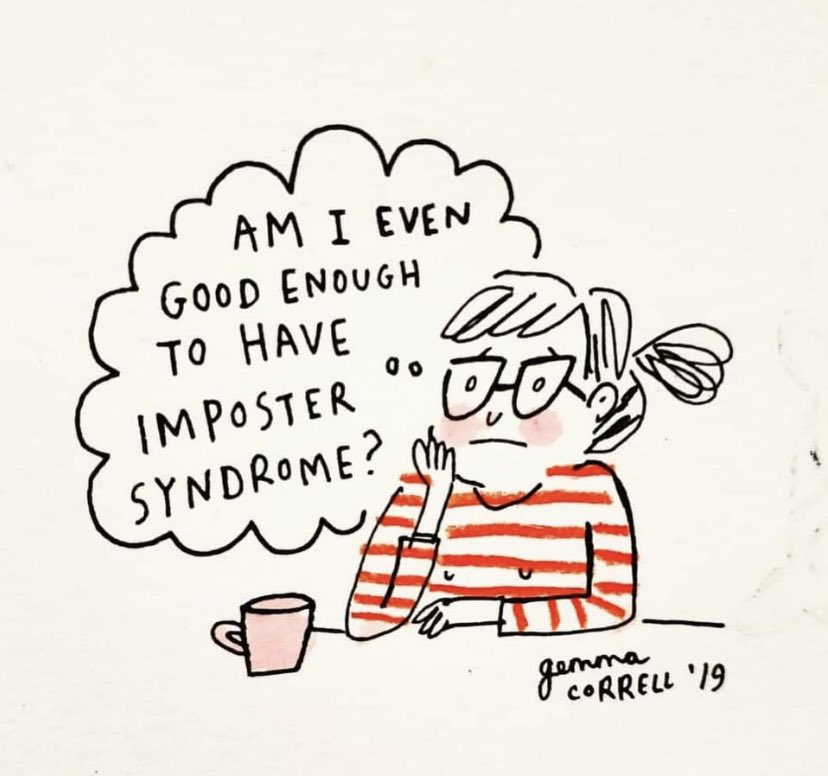 AM I EVEN
GOOD ENOUGH
TO HAVE
IMPOSTER
SYNDROME?
gemma
CORRELL '19